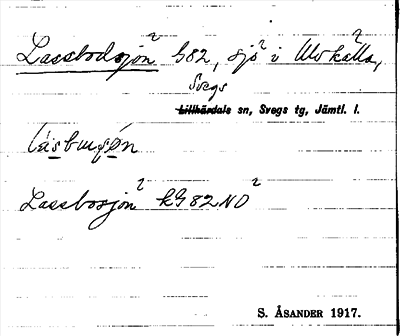 Lassbodsjön² G82, sjö² i Ulvkälla²,
Svegs
Lillhärdals sn, Svegs tg, Jämtl. l.
Lassbosjön² kG82NO²
S. ÅSANDER 1917.